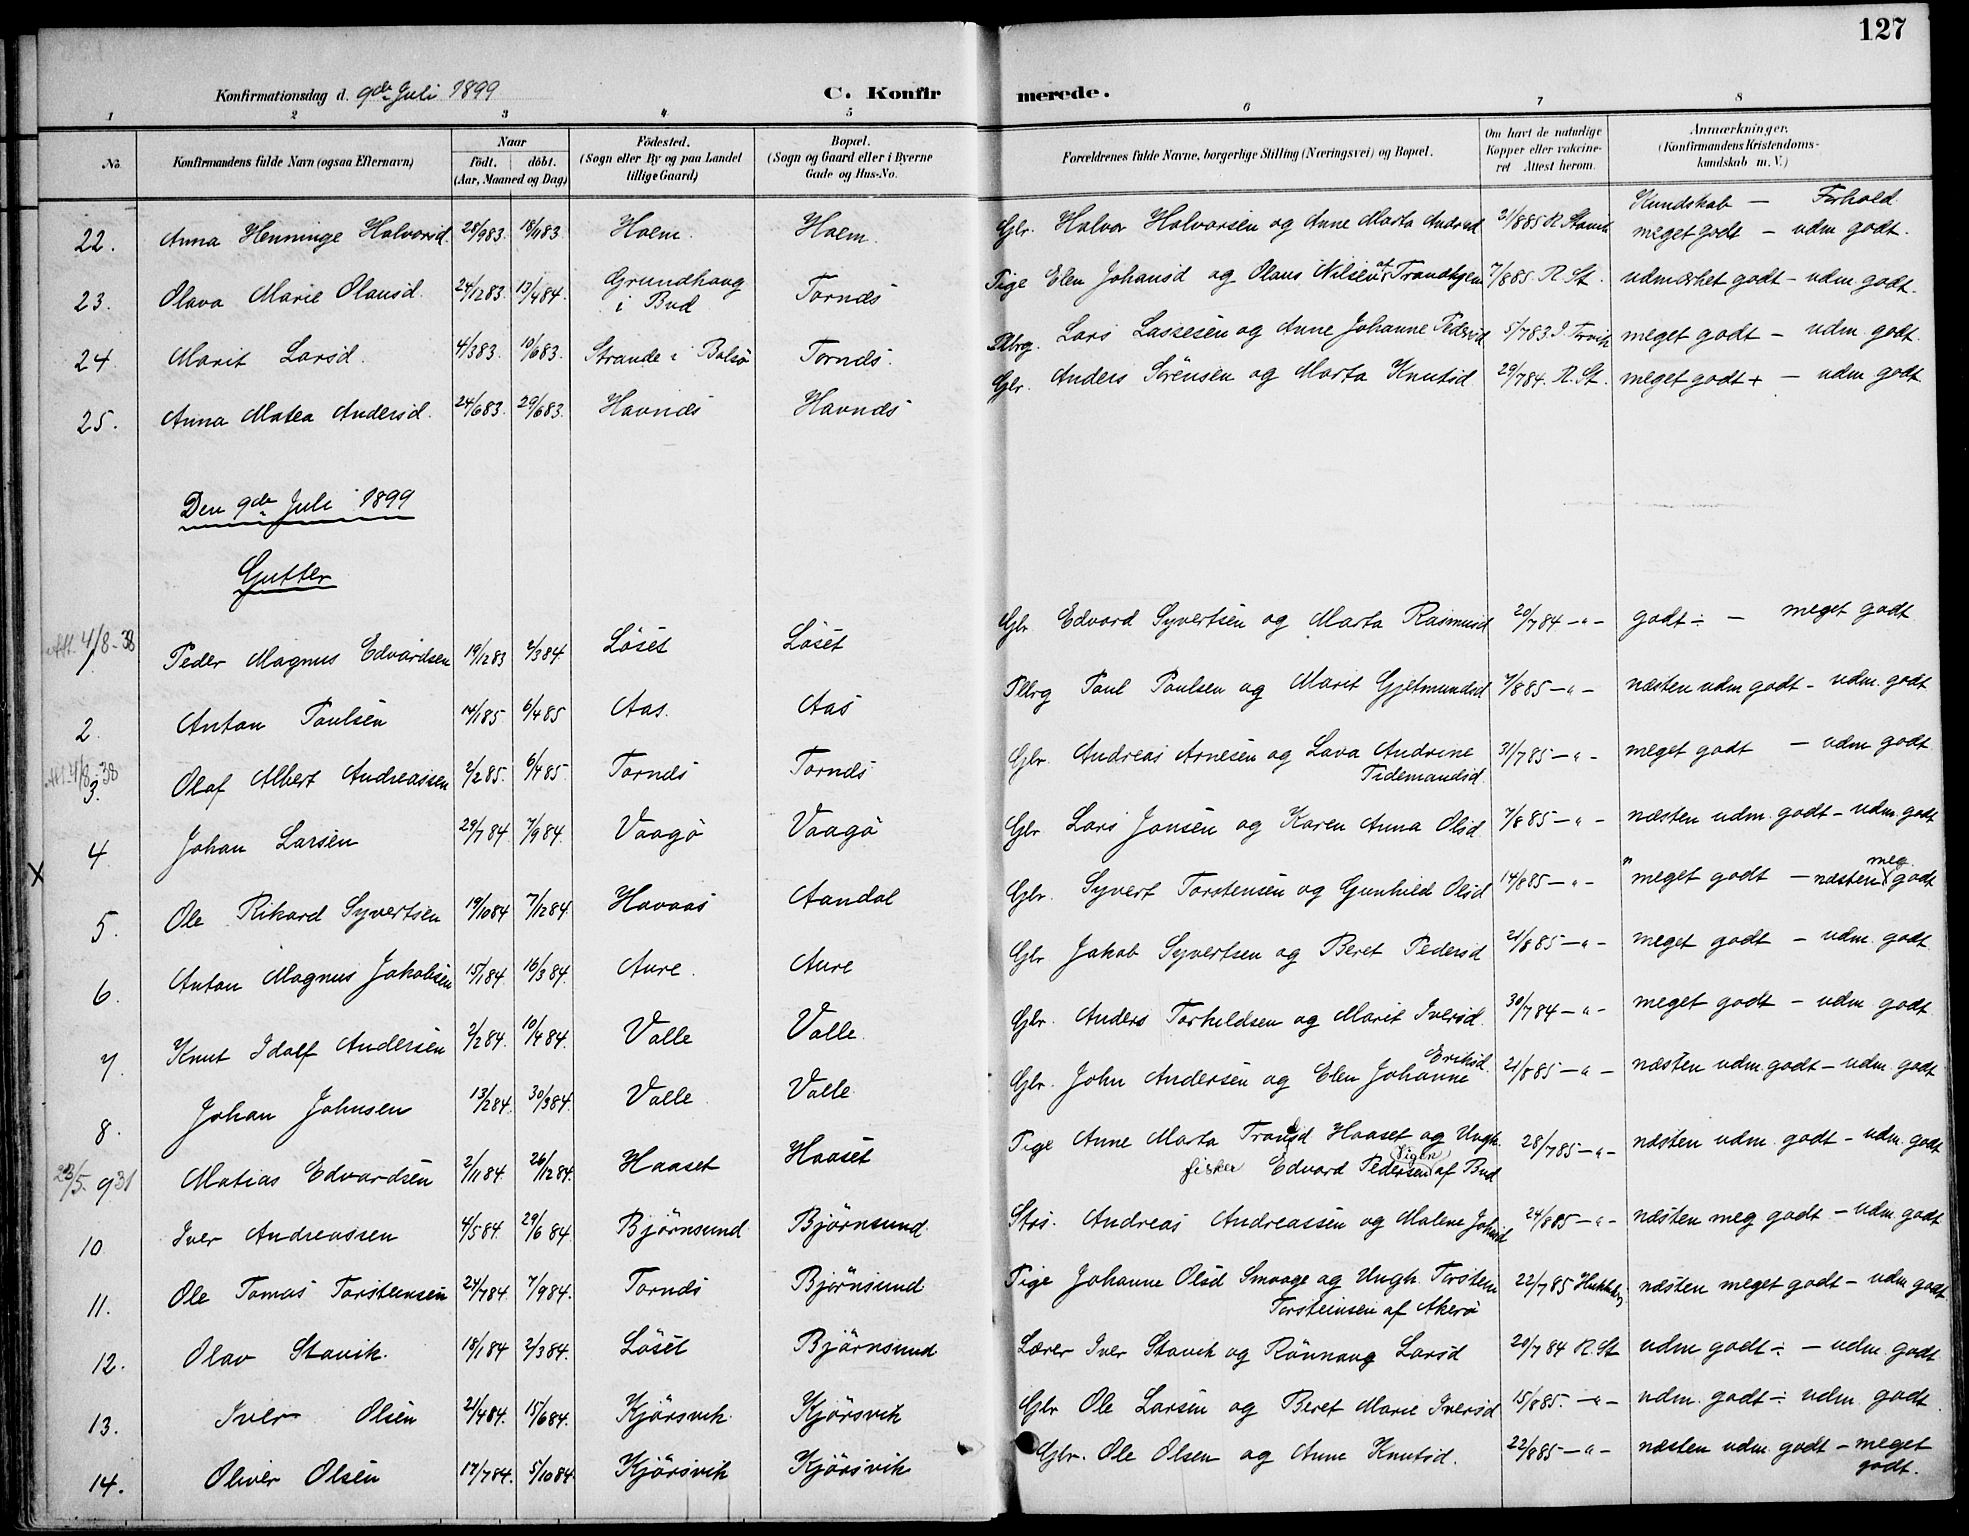 127
Konfirmationsdag d. 9de Juli 1899 C. Konfirmerede.
1 2 3 4 5 6 7 8
No. Konfirmandens fulde Navn (ogsaa Efternavn) Naar födt. döbt. (Aar, Maaned og Dag) Födested. (Sogn eller By og paa Landet tillige Gaard) Bopæl. (Sogn og Gaard eller i Byerne Gade og Hus-No. Forældrenes fulde Navne, borgerlige Stilling (Næringsvei) og Bopæl. Om havt de naturlige Kopper eller vakcineret Attest herom. Anmærkninger. (Konfirmandens Kristendomskundskab m. V.)
Kundskab — Forhold
22. Anna Henninge Halvorsd. 28/983. 18/1183. Hoem. Hoem. Gbr. Halvor Halvorsen og Anne Marta Andersd 31/885 R. Stavik meget godt — udm godt.
23. Olava Marie Olausd. 24/1283. 13/484. Grundhaug i Bud Tornes Pige Elen Johansd og Olaus Nilsen af Trondhjem 7/885. R. St. udmærket godt — udm. godt.
24 Marit Larsd. 4/383. 10/683. Strande i Bolsö Tornes. Plbrg. Lars Lassesen og Anne Johanne Pedersd 5/783. meget godt — udm. godt.
25. Anna Matea Andersd. 24/683. 29/683. Havnes Havnes Gbr. Anders Sörensen og Marta Knutsd 29/784. R. St. meget godt + — udm godt
Den 9de Juli 1899
Gutter
Att. 4/8-38
1 Peder Magnus Edvardsen 19/1283 2/384. Löset Löset Gbr Edvard Syvertsen og Marta Rasmusd 20/784 —"— godt ÷ — meget godt
2 Anton Paulsen 14/185 6/485 Aas. Aas Plbrg Paul Paulsen og Marit Gjetmundsd 7/885 —"— næsten udm godt — udm. godt
Att. 4/8-38
3. Olaf Albert Andreassen 2/285. 6/485. Tornes Tornes Gbr. Andreas Arnesen og Lava Andrine Tidemandsd. 31/785 —"— meget godt — udm godt
4 Johan Larsen 29/784 7/984. Vaagö Vaagö Gbr Lars Jonsen og Karen Anna Olsd. 7/885 —"— næsten udm. godt — udm. godt
X
5. Ole Rikard Syvertsen 19/1084 7/1284. Havaas Aandal Gbr. Syvert Torstensen og Gunhild Olsd 14/885 —"— " meget godt — næsten meg. godt
6. Anton Magnus Jakobsen 15/184. 16/384. Aure. Aure Gbr Jakob Syvertsen og Beret Pedersd 21/885 —"— meget godt — udm. godt
7. Knut Idolf Andersen 2/284. 10/484. Valle Valle Gbr. Anders Torkildsen og Marit Iversd. 30/784 —"— meget godt — udm godt
8. Johan Johnsen 13/284. 30/384. Valle Valle Gbr. John Andersen og Elen Johanne Eriksd. 21/885 —"— næsten udm. godt — udm. godt
23/5. 931 Matias Edvardsen 2/1184. 26/1284. Haaset Haaset Pige Anne Marta Haaset og Ungk. fisker Edvard Pedersen af Bud 28/785 —"— næsten udm. godt — udm. godt
10 Iver Andreassen 4/584. 29/684. Björnsund Björnsund Strs. Andreas Andreassen og Malene 24/885 —"— næsten meg godt — udm. godt
11. Ole Tomas Torsteinsen 24/784. 7/984. Tornes Björnsund Pige Johanne Olsd Smaage og Ungk. Torstein Torsteinsen af Akerö 22/785 næsten meget godt — udm godt
12. Olav Stavik. 18/184 2/384. Löset Björnsund Lærer Iver Stavik og Rönnaug Larsd 20/784 R. St udm godt ÷ — udm. godt
13. Iver Olsen 21/484. 15/684. Kjörsvik Kjörsvik Gbr Ole Larsen og Beret Marie Iversd 15/885. —"— udm. godt ÷ udm. godt.
14. Oliver Olsen 17/784. 5/1084 Kjörsvik Kjörsvik Gbr. Ole Olsen og Anne Knutsd. 22/885 —"— næsten udm. godt — meget godt.